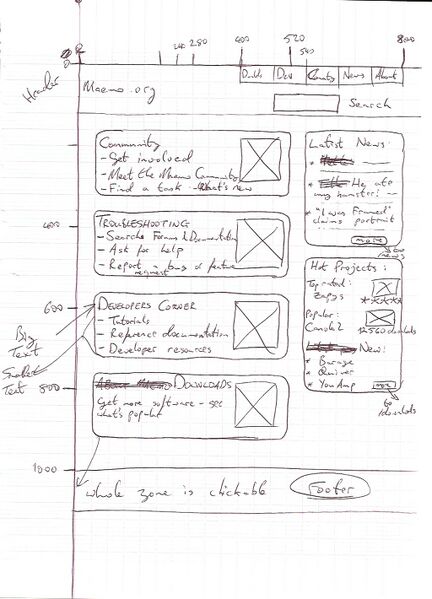 0
240
280
400
520
560
800
Header
Maemo.org
Dev
Comty
News
About
Search
Community
- Get involved
- Meet the Maemo Community
- Find a task - What's new
Latest News:
* He ate
my hamster!
* "I was Framed"
claims portrait
more
to
news
400
TROUBLESHOOTING
- Search Forums & Documentation
- Ask for help
- Report a bug or feature
request
Hot Projects:
Top rated:
Zapps
****
Popular:
Canola2
12560 dwnlds
New:
* Barage
* Quiver
* YouAmp
more
to
dwnlds
600
DEVELOPERS CORNER
- Tutorials
- Reference documentation
- Developer resources
Big
Text
Smaller
Text
800
DOWNLOADS
Get more software - see
what's popular
1000
whole zone is clickable
Footer